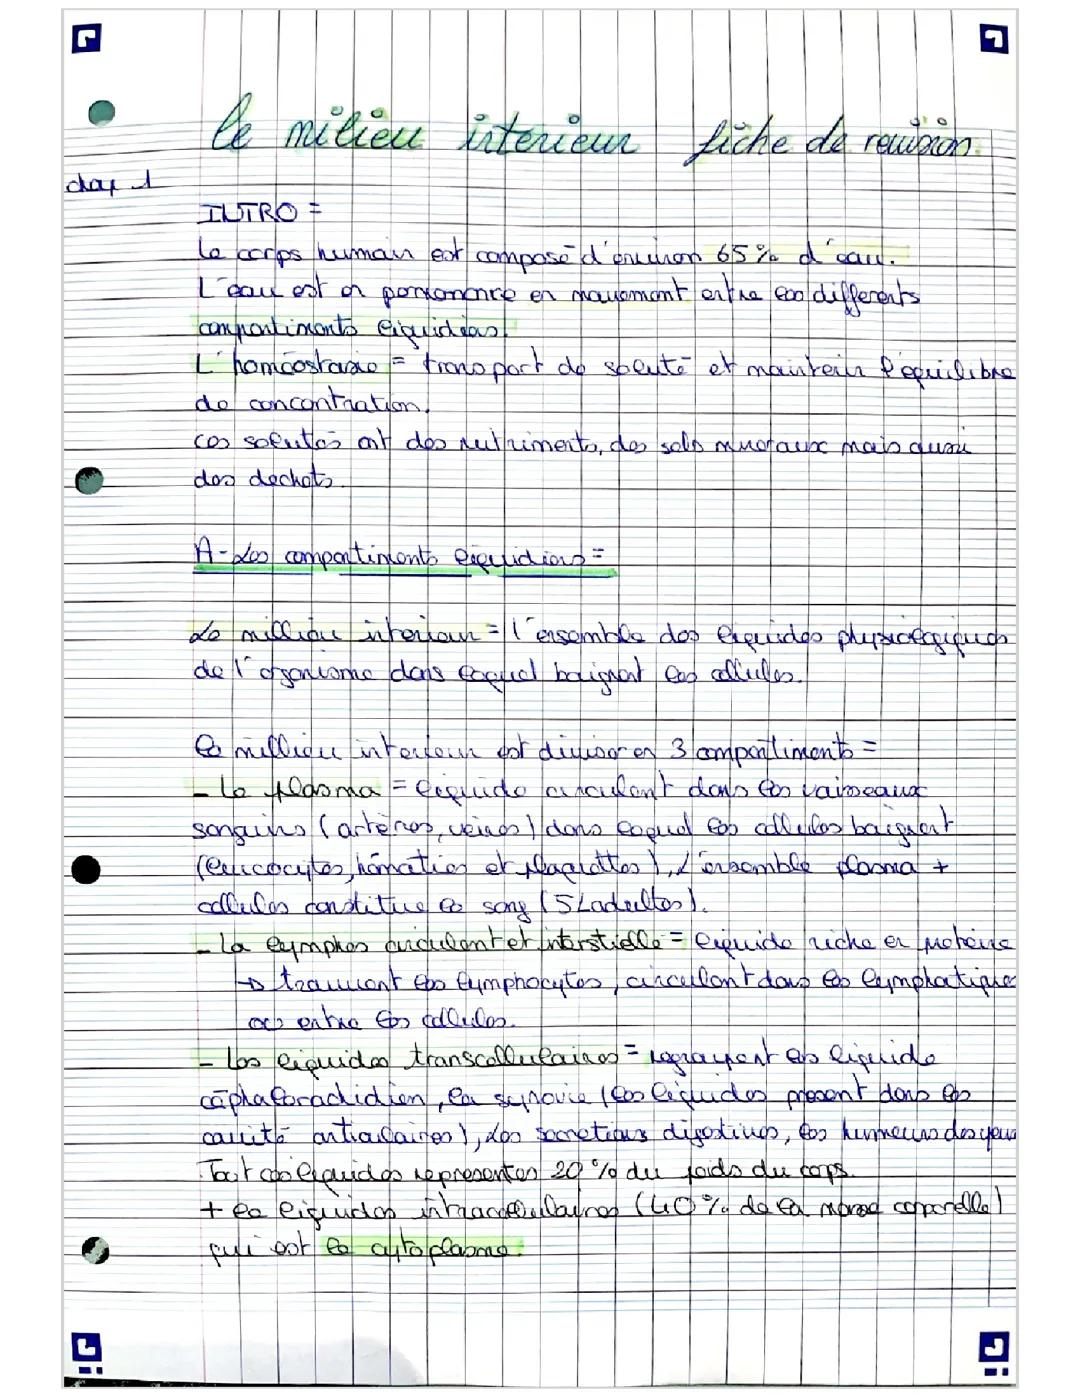 le milieu interieur fiche de revision
chap 1
INTRO =
Le corps humain est composé d'environ 65% d'eau.
L'eau est en permanence en mouvement entre les differents
compartiments liquidiens.
L'homéostasie = transport de soluté et maintenir l'équilibre
de concentration.
ces solutés ont des nutriments, des sels mineraux mais aussi
des dechets.
A - Les compartiments liquidiens =
Le millieu interieur = l'ensemble des liquides physiologiques
de l'organisme dans lequel baignent les cellules.
le millieu interieur est diviser en 3 compartiments =
- Le plasma = liquide circulant dans les vaisseaux
sanguins (artères, veines) dans lequel les cellules baignent
(leucocytes, hématies et plaquettes), l'ensemble plasma +
cellules constitue le sang (5L adultes).
- La lymphes circulent et interstielle = liquide riche en proteine
→ trauvent les lymphocytes, circulent dans les lymphatiques
entre les cellules.
- Les liquides transcellulaires = regroupent les liquide
céphalorachidien, la synovie (les liquides present dans les
cavité articulaires), les secretions digestives, les humeurs des yeux
Tout ces liquides representes 20% du poids du corps.
+ le liquides intracellulaires (40% de la masse corporelle)
qui est le cytoplasme.